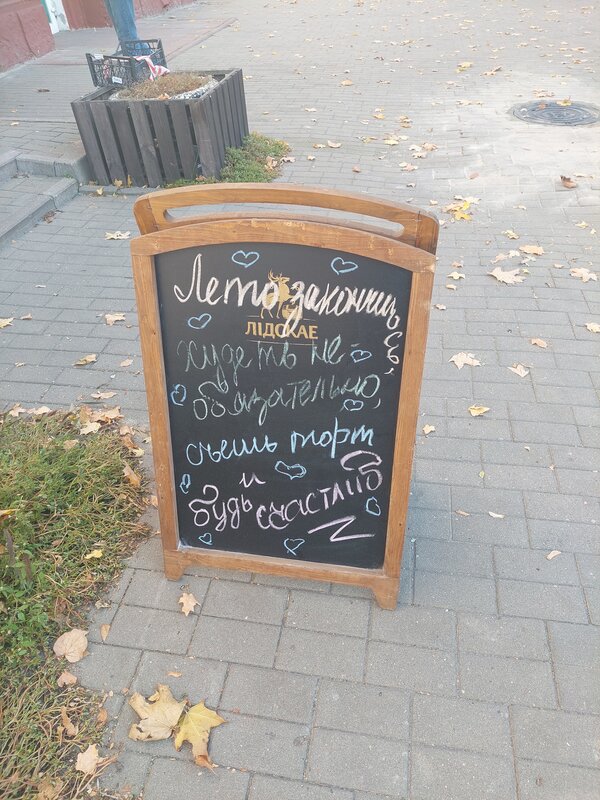 Лето закончилось,
ЛІДСКАЕ
худеть не-
обязательно,
съешь торт
и
будь счастлив